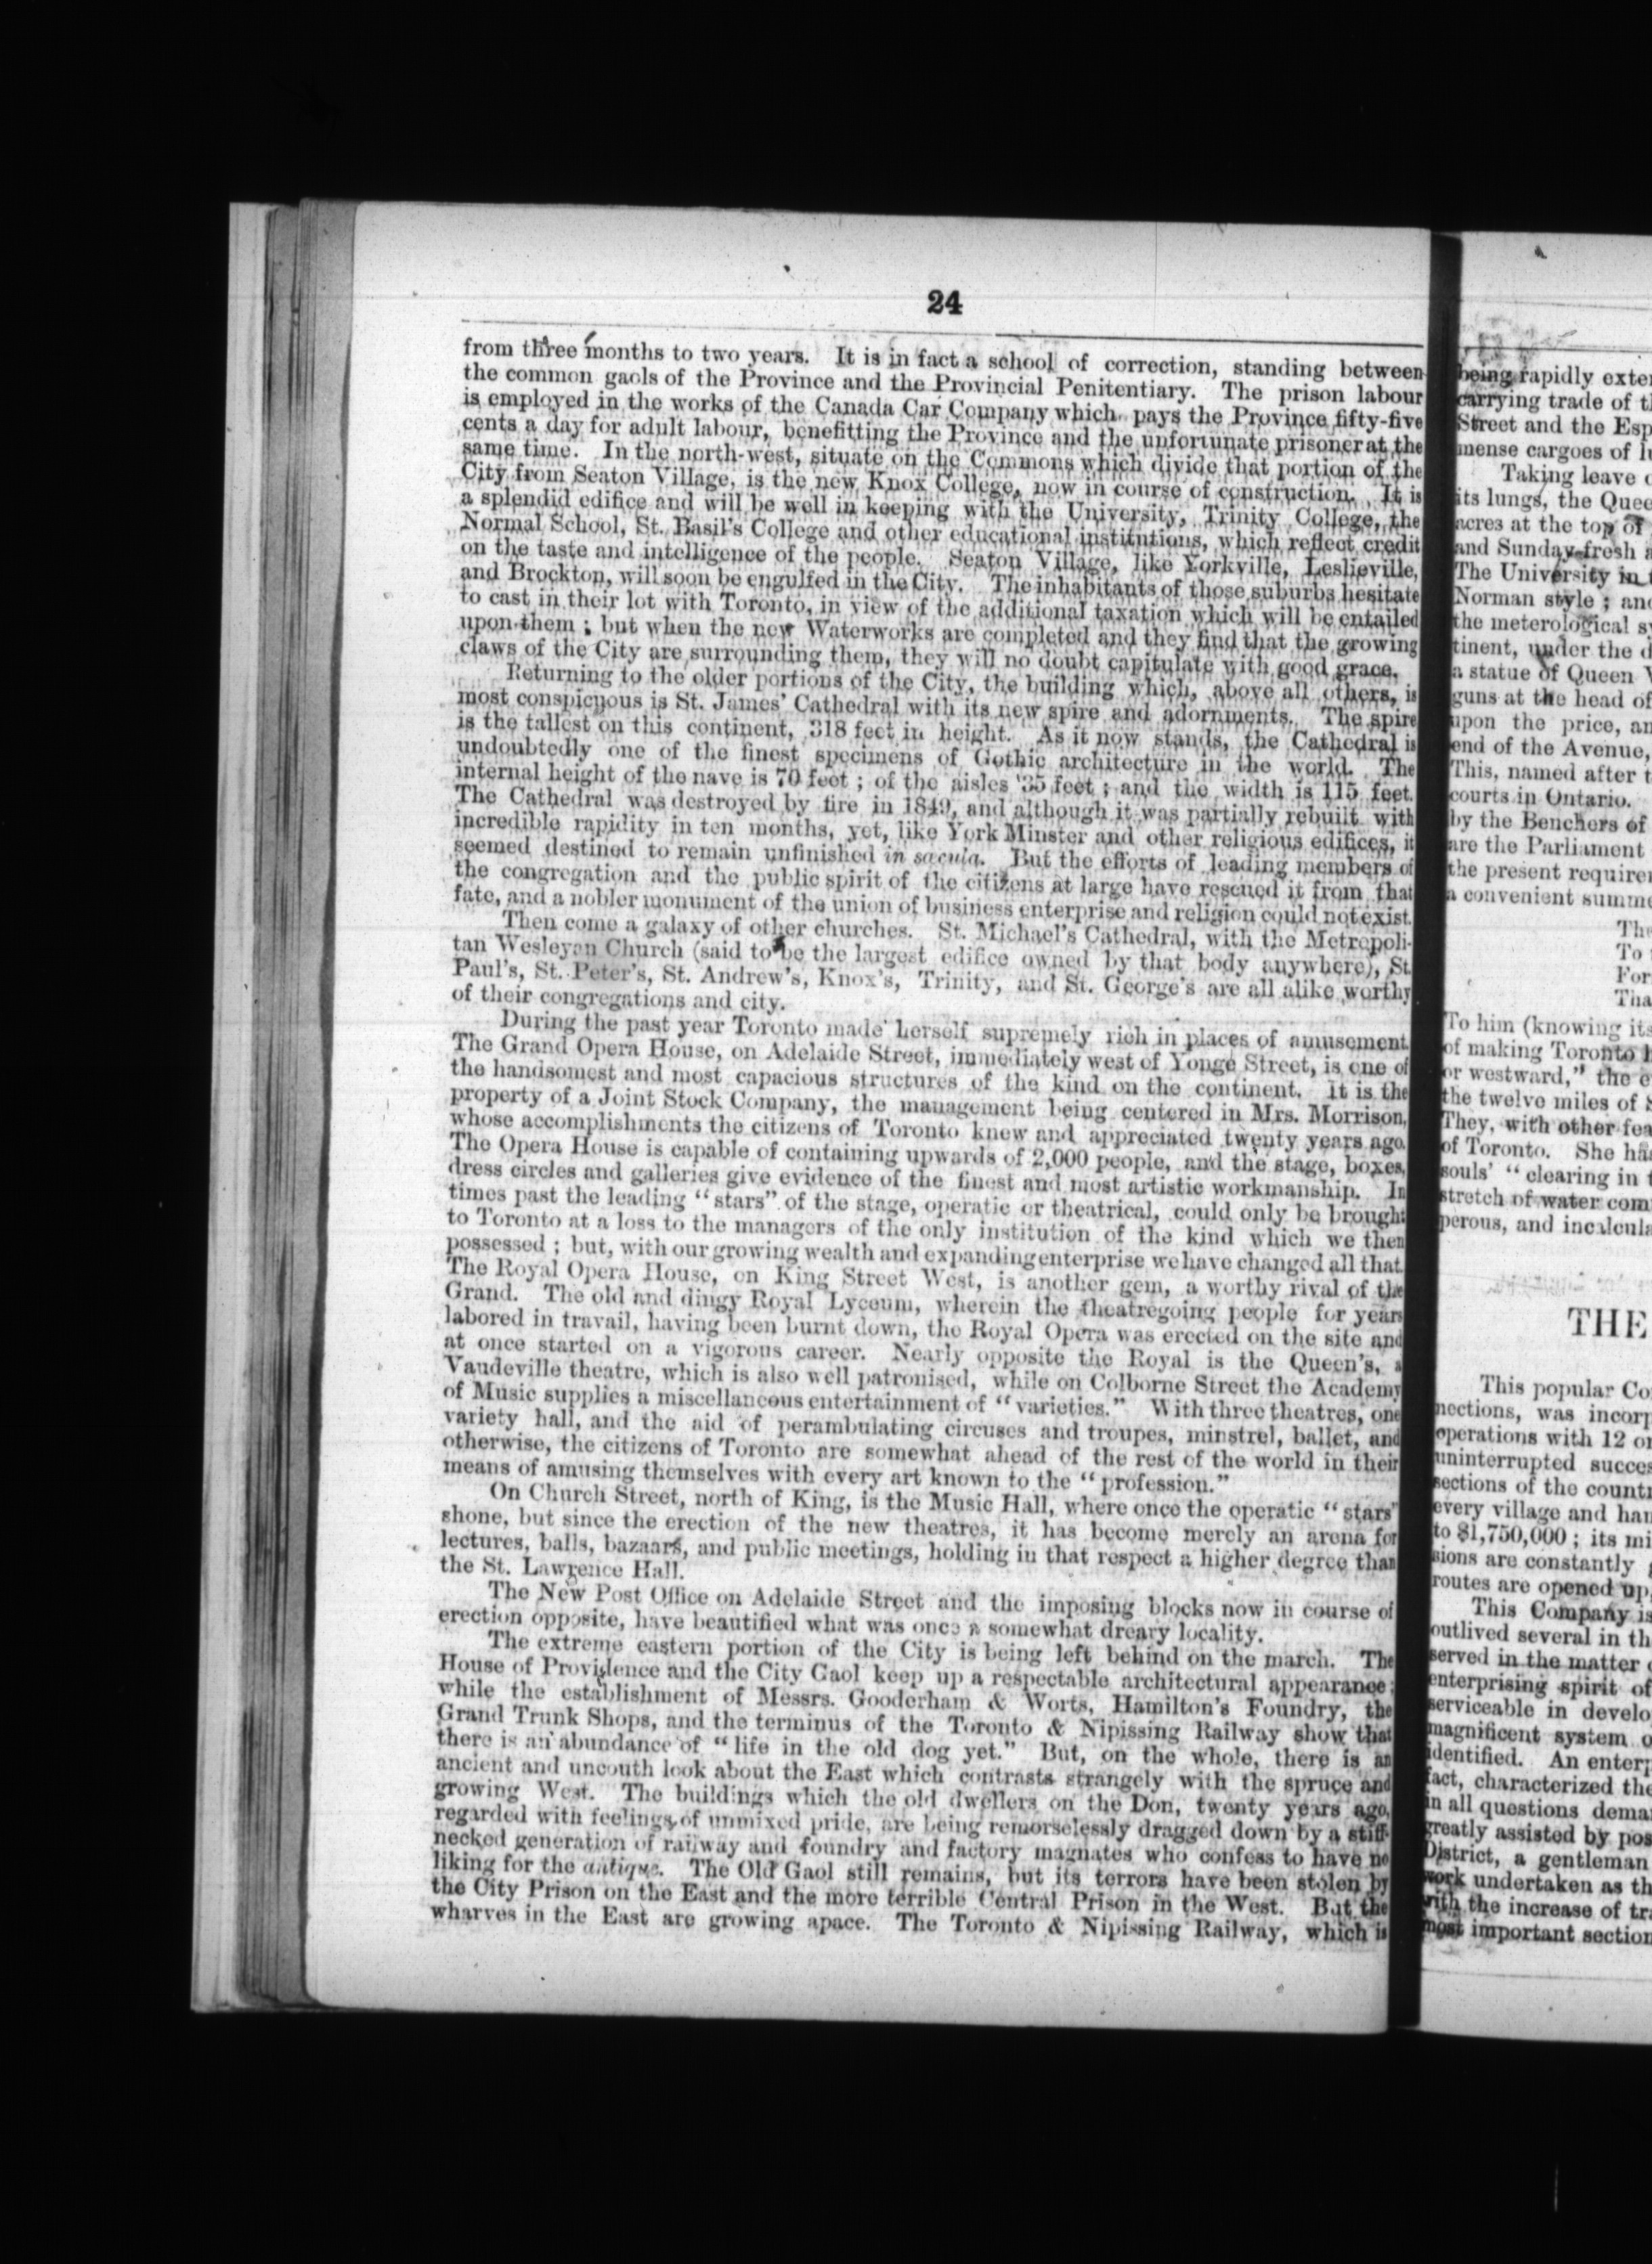 24
from three months to two years. It is in fact a school of correction, standing between
the common gaols of the Province and the Provincial Penitentiary. The prison labour
is employed in the works of the Canada Car Company which pays the Province fifty-five
cents a day for adult labour, benefitting the Province and the unfortunate prisoner at the
same time. In the north-west, situate on the Commons which divide that portion of the
City from Seaton Village, is the new Knox College, now in course of construction. It is
a splendid edifice and will be well in keeping with the University, Trinity College, the
Normal School, St. Basil's College and other educational institutions, which reflect credit
on the taste and intelligence of the people. Seaton Village, like Yorkville, Leslieville,
and Brockton, will soon be engulfed in the City. The inhabitants of those suburbs hesitate
to cast in their lot with Toronto, in view of the additional taxation which will be entailed
upon them ; but when the new Waterworks are completed and they find that the growing
claws of the City are surrounding them, they will no doubt capitulate with good grace.
Returning to the older portions of the City, the building which, above all others, is
most conspicuous is St. James' Cathedral with its new spire and adornments. The spire
is the tallest on this continent, 318 feet in height. As it now stands, the Cathedral is
undoubtedly one of the finest specimens of Gothic architecture in the world. The
internal height of the nave is 70 feet ; of the aisles 35 feet ; and the width is 115 feet.
The Cathedral was destroyed by fire in 1849, and although it was partially rebuilt with
incredible rapidity in ten months, yet, like York Minster and other religious edifices, it
seemed destined to remain unfinished in sæcula. But the efforts of leading members of
the congregation and the public spirit of the citizens at large have rescued it from that
fate, and a nobler monument of the union of business enterprise and religion could not exist.
Then come a galaxy of other churches. St. Michael's Cathedral, with the Metropoli-
tan Wesleyan Church (said to be the largest edifice owned by that body anywhere), St.
Paul's, St. Peter's, St. Andrew's, Knox's, Trinity, and St. George's are all alike worthy
of their congregations and city.
During the past year Toronto made herself supremely rich in places of amusement.
The Grand Opera House, on Adelaide Street, immediately west of Yonge Street, is one of
the handsomest and most capacious structures of the kind on the continent. It is the
property of a Joint Stock Company, the management being centered in Mrs. Morrison,
whose accomplishments the citizens of Toronto knew and appreciated twenty years ago.
The Opera House is capable of containing upwards of 2,000 people, and the stage, boxes,
dress circles and galleries give evidence of the finest and most artistic workmanship. In
times past the leading "stars" of the stage, operatic or theatrical, could only be brought
to Toronto at a loss to the managers of the only institution of the kind which we then
possessed ; but, with our growing wealth and expanding enterprise we have changed all that.
The Royal Opera House, on King Street West, is another gem, a worthy rival of the
Grand. The old and dingy Royal Lyceum, wherein the theatregoing people for years
labored in travail, having been burnt down, the Royal Opera was erected on the site and
at once started on a vigorous career. Nearly opposite the Royal is the Queen's, a
Vaudeville theatre, which is also well patronised, while on Colborne Street the Academy
of Music supplies a miscellaneous entertainment of "varieties." With three theatres, one
variety hall, and the aid of perambulating circuses and troupes, minstrel, ballet, and
otherwise, the citizens of Toronto are somewhat ahead of the rest of the world in their
means of amusing themselves with every art known to the "profession."
On Church Street, north of King, is the Music Hall, where once the operatic "stars"
shone, but since the erection of the new theatres, it has become merely an arena for
lectures, balls, bazaars, and public meetings, holding in that respect a higher degree than
the St. Lawrence Hall.
The New Post Office on Adelaide Street and the imposing blocks now in course of
erection opposite, have beautified what was once a somewhat dreary locality.
The extreme eastern portion of the City is being left behind on the march. The
House of Providence and the City Gaol keep up a respectable architectural appearance ;
while the establishment of Messrs. Gooderham & Worts, Hamilton's Foundry, the
Grand Trunk Shops, and the terminus of the Toronto & Nipissing Railway show that
there is an abundance of "life in the old dog yet." But, on the whole, there is an
ancient and uncouth look about the East which contrasts strangely with the spruce and
growing West. The buildings which the old dwellers on the Don, twenty years ago,
regarded with feelings of unmixed pride, are being remorselessly dragged down by a stiff-
necked generation of railway and foundry and factory magnates who confess to have no
liking for the antique. The Old Gaol still remains, but its terrors have been stolen by
the City Prison on the East and the more terrible Central Prison in the West. But the
wharves in the East are growing apace. The Toronto & Nipissing Railway, which is
being rapidly exte
carrying trade of t
Street and the Esp
mense cargoes of l
Taking leave
its lungs, the Quee
acres at the top of
and Sunday fresh a
The University in
Norman style ; and
the meterological s
tinent, under the d
a statue of Queen V
guns at the head of
upon the price, an
end of the Avenue,
This, named after t
courts in Ontario.
by the Benchers of
are the Parliament
the present require
a convenient summe
The
To
For
Tha
To him (knowing its
of making Toronto
or westward," the
the twelve miles of
They, with other fea
of Toronto. She has
souls' "clearing in
stretch of water com
perous, and incalcula
THE
This popular Co
nections, was incorp
operations with 12 o
uninterrupted succes
sections of the count
every village and ham
to $1,750,000 ; its mi
sions are constantly
routes are opened up,
This Company is
outlived several in th
served in the matter
enterprising spirit of
serviceable in develo
magnificent system o
identified. An enterp
fact, characterized the
in all questions dema
greatly assisted by pos
District, a gentleman
work undertaken as th
with the increase of tra
most important section